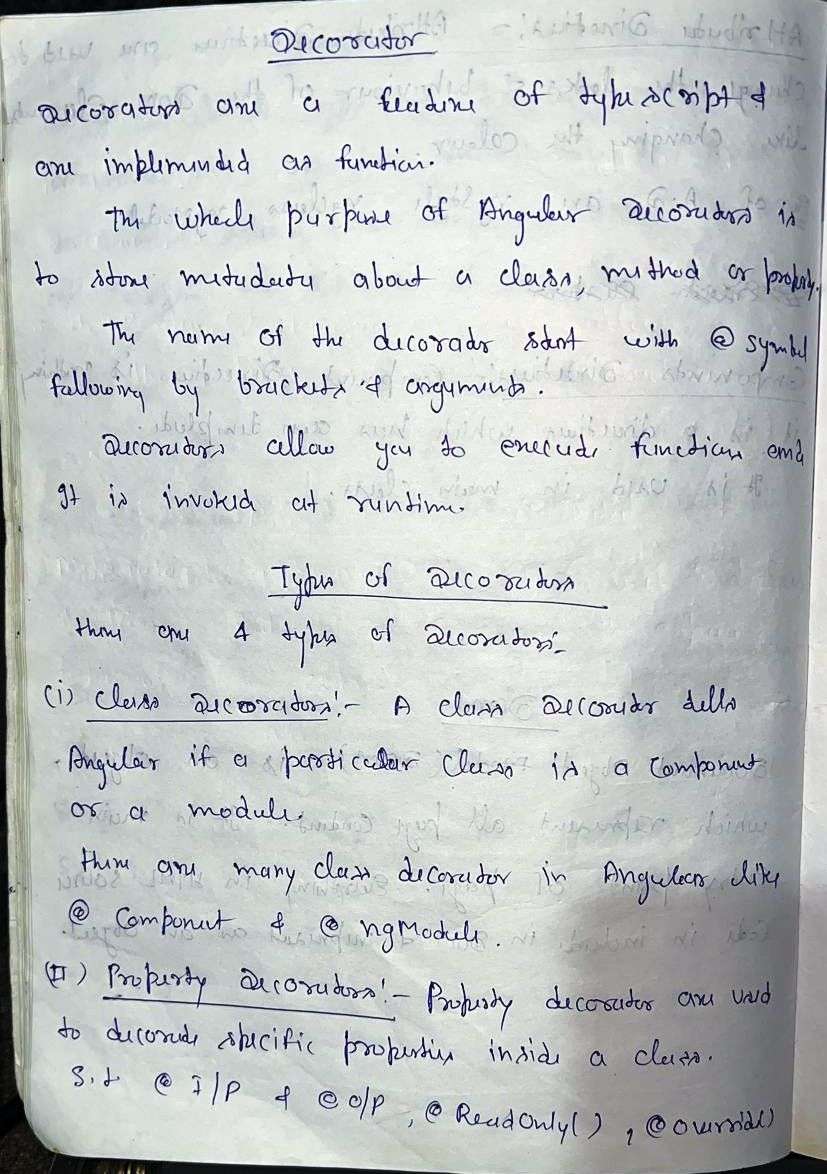 Decorator
Decorators are a feature of typescript &
are implemented as function.
The whole purpose of Angular Decorators is
to store metadata about a class, method or property.
The name of the decorator start with @ symbol
following by brackets & arguments.
Decorators allow you to execute function and
It is invoked at runtime.
Types of Decorators
There are 4 types of Decorators:-
(i) Class Decorators:- A class Decorator tells
Angular if a particular Class is a Component
or a module.
There are many class decorator in Angular like
@ Component & @ ngModule.
(II) Property Decorators:- Property decorator are used
to decorate specific properties inside a class.
S.t @ I/P & @ O/P, @ ReadOnly(), @ Override()